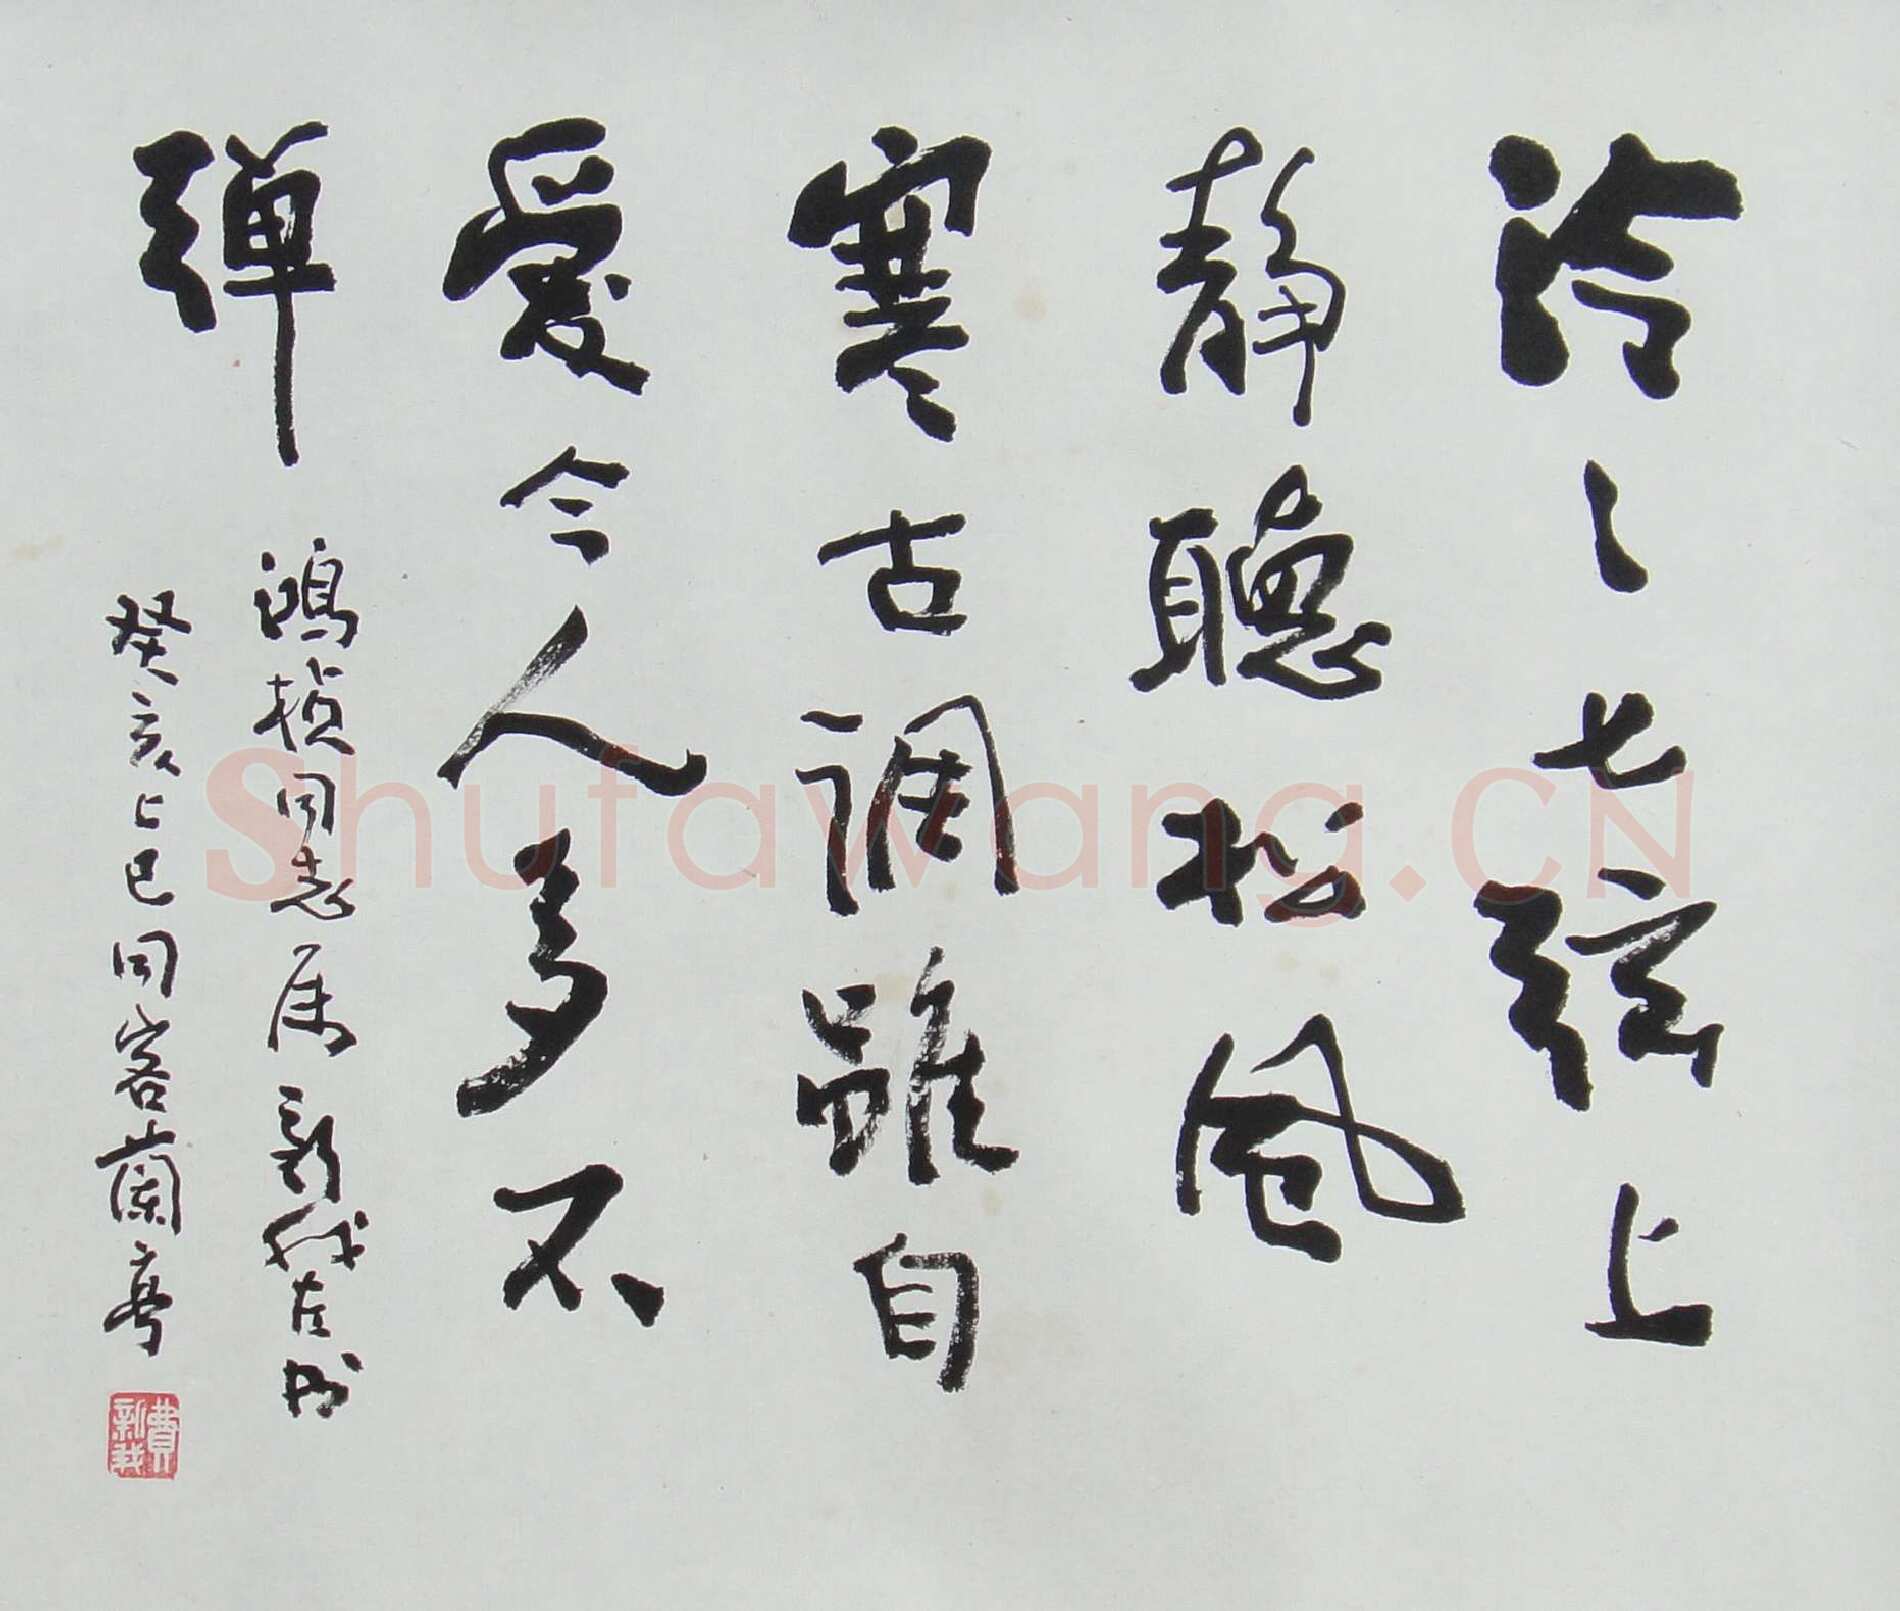 泠〻七弦上
靜聽松風
寒古調雖自
愛今人多不
彈
鴻楨同志属 新我左书
癸亥上巳同客蘭亭
費新我
Shufawang.CN